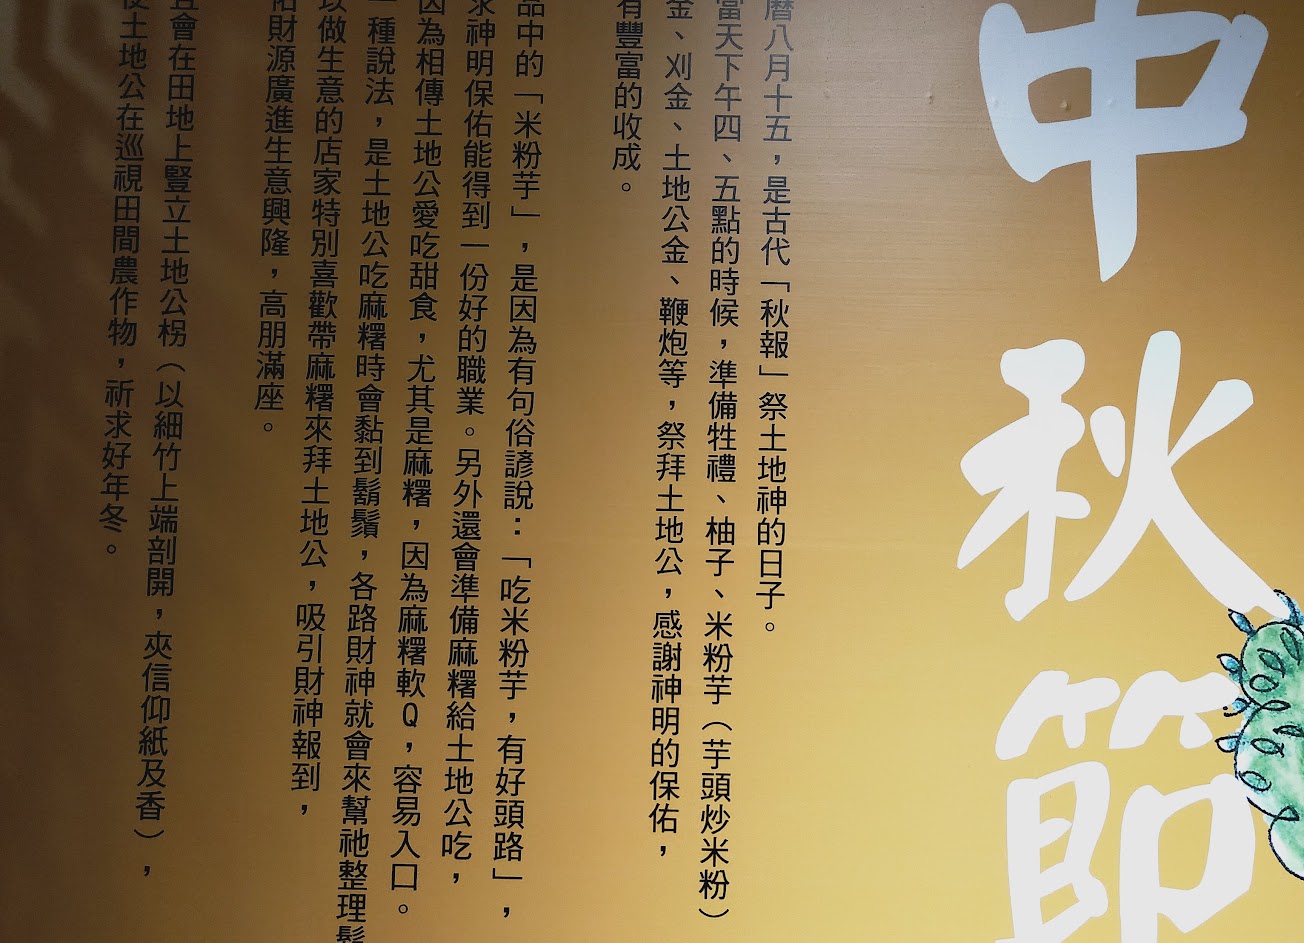 中秋節
曆八月十五，是古代「秋報」祭土地神的日子。
當天下午四、五點的時候，準備牲禮、柚子、米粉芋（芋頭炒米粉）
金、刈金、土地公金、鞭炮等，祭拜土地公，感謝神明的保佑，
有豐富的收成。
品中的「米粉芋」，是因為有句俗諺說：「吃米粉芋，有好頭路」，
求神明保佑能得到一份好的職業。另外還會準備麻糬給土地公吃，
因為相傳土地公愛吃甜食，尤其是麻糬，因為麻糬軟Q，容易入口。
一種說法，是土地公吃麻糬時會黏到鬍鬚，各路財神就會來幫祂整理鬍
以做生意的店家特別喜歡帶麻糬來拜土地公，吸引財神報到，
佑財源廣進生意興隆，高朋滿座。
會在田地上豎立土地公柺（以細竹上端剖開，夾信仰紙及香），
土地公在巡視田間農作物，祈求好年冬。